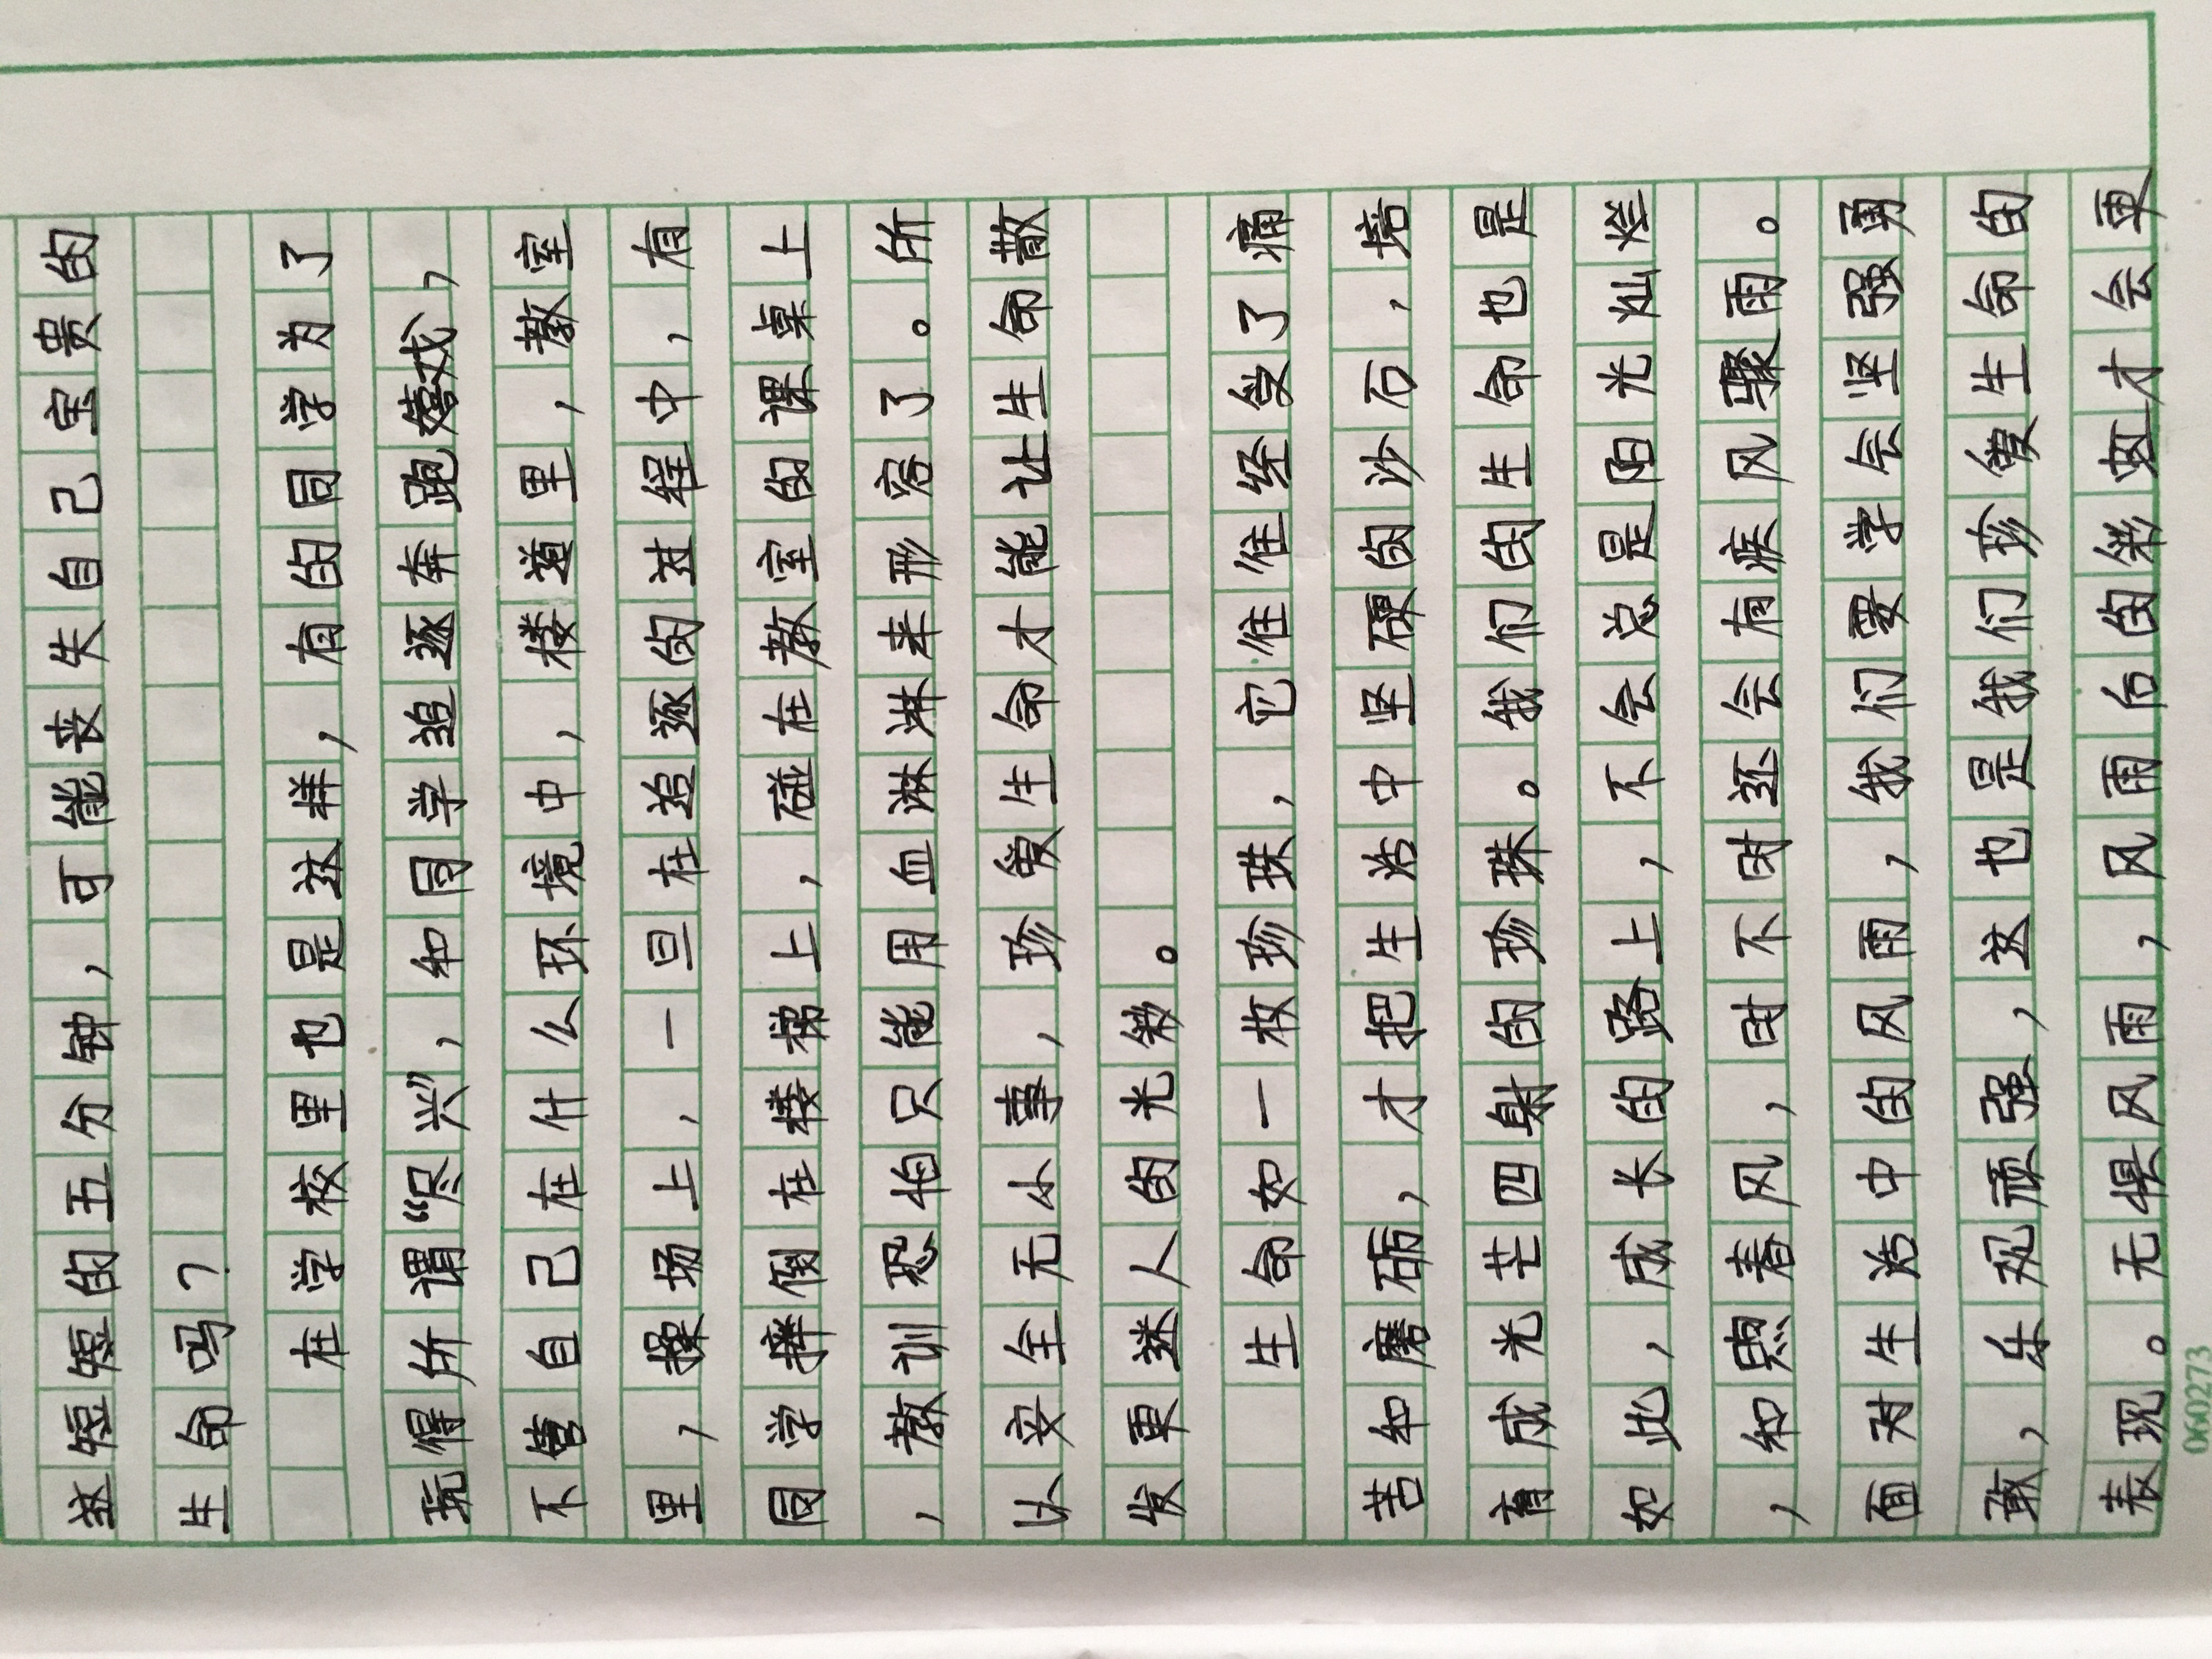 这短短的五分钟，可能丧失自己宝贵的
生命吗？
在学校里也是这样，有的同学为了
玩得所谓“尽兴”，和同学追逐奔跑嬉戏，
不管自己在什么环境中，楼道里，教室
里，操场上，一旦在追逐的过程中，有
同学摔倒在楼梯上，碰在教室的课桌上
，教训恐怕只能用血淋淋来形容了。所
以安全无小事，珍爱生命才能让生命散
发更迷人的光彩。
生命如一枚珍珠，它往往经受了痛
苦和磨砺，才把生活中坚硬的沙石，培
育成光芒四射的珍珠。我们的生命也是
如此，成长的路上，不会总是阳光灿烂
，和煦春风，时不时还会有疾风骤雨。
面对生活中的风雨，我们要学会坚强勇
敢，乐观顽强，这也是我们珍爱生命的
表现。无惧风雨，风雨后的彩虹才会更
060273